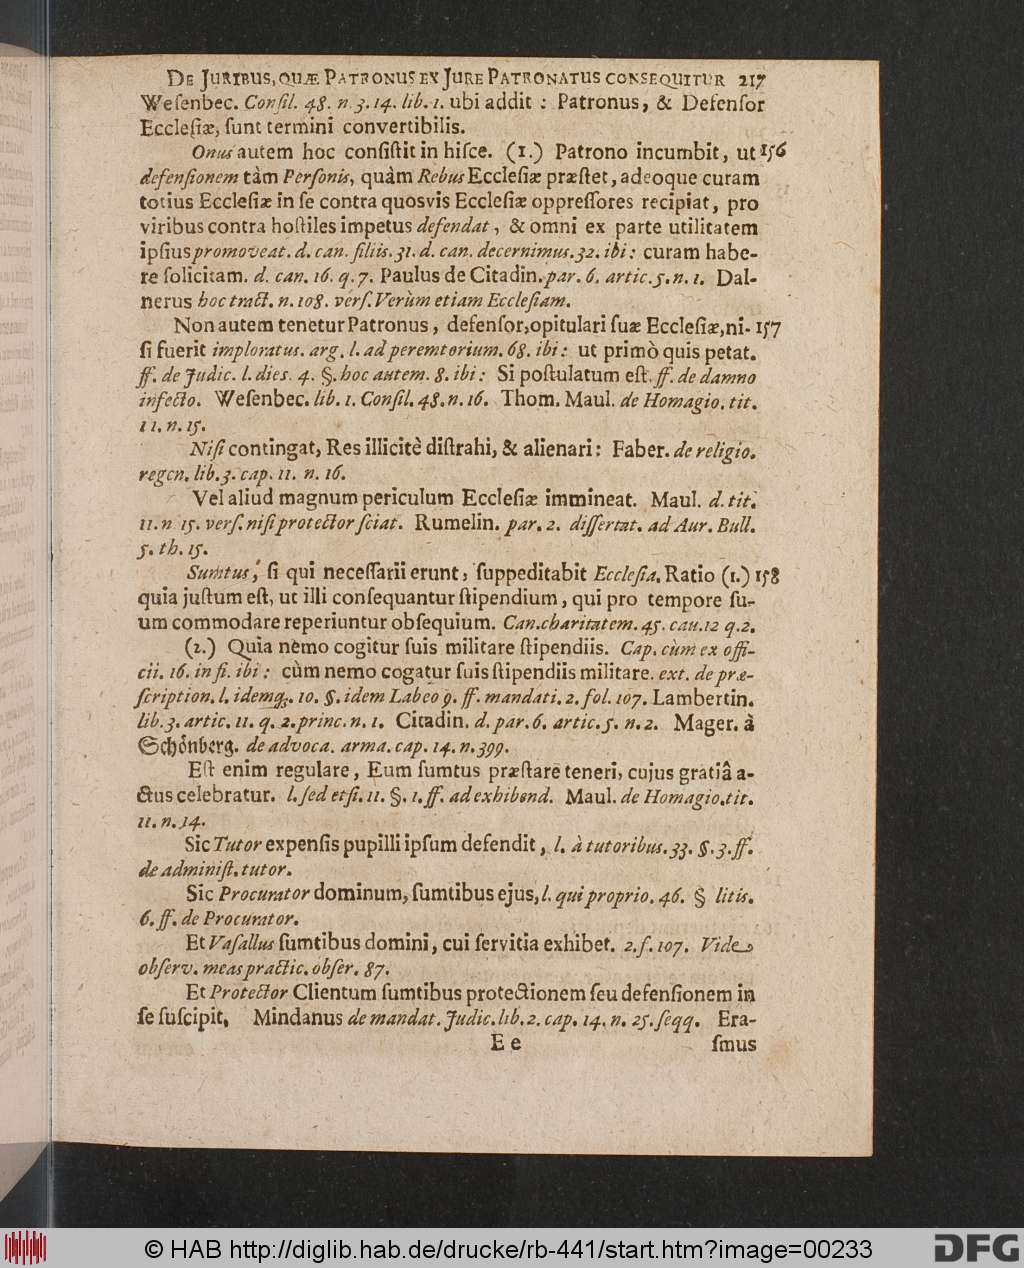 De Juribus, quæ Patronus ex Jure Patronatus consequitur 217
Weſenbec. Conſil. 48. n. 3. 14. lib. 1. ubi addit : Patronus, & Defenſor
Eccleſiæ, ſunt termini convertibilis.
Onus autem hoc conſiſtit in hiſce. (1.) Patrono incumbit, ut 156
defenſionem tàm Perſonis, quàm Rebus Eccleſiæ præſtet, adeoque curam
totius Eccleſiæ in ſe contra quosvis Eccleſiæ oppreſſores recipiat, pro
viribus contra hoſtiles impetus defendat, & omni ex parte utilitatem
ipſius promoveat. d. can. filiis. 31. d. can. decernimus. 32. ibi: curam habe-
re ſolicitam. d. can. 16. q. 7. Paulus de Citadin. par. 6. artic. 5. n. 1. Dal-
nerus hoc tract. n. 108. verſ. Verùm etiam Eccleſiam.
Non autem tenetur Patronus, defenſor, opitulari ſuæ Eccleſiæ, ni- 157
ſi fuerit imploratus. arg. l. ad peremtorium. 68. ibi: ut primò quis petat.
ff. de Judic. l. dies. 4. §. hoc autem. 8. ibi: Si poſtulatum eſt. ff. de damno
infecto. Weſenbec. lib. 1. Conſil. 48. n. 16. Thom. Maul. de Homagio. tit.
11. n. 15.
Niſi contingat, Res illicitè diſtrahi, & alienari: Faber. de religio.
regen. lib. 3. cap. 11. n. 16.
Vel aliud magnum periculum Eccleſiæ immineat. Maul. d. tit.
11. n 15. verſ. niſi protector ſciat. Rumelin. par. 2. diſſertat. ad Aur. Bull.
5. th. 15.
Sumtus, ſi qui neceſſarii erunt, ſuppeditabit Eccleſia. Ratio (1.) 158
quia juſtum eſt, ut illi conſequantur ſtipendium, qui pro tempore ſu-
um commodare reperiuntur obſequium. Can. charitatem. 45. cau. 12 q. 2.
(2.) Quia nemo cogitur ſuis militare ſtipendiis. Cap. cùm ex offi-
cii. 16. in fi. ibi: cùm nemo cogatur ſuis ſtipendiis militare. ext. de præ-
ſcription. l. idemq;. 10. §. idem Labeo 9. ff. mandati. 2. fol. 107. Lambertin.
lib. 3. artic. 11. q. 2. princ. n. 1. Citadin. d. par. 6. artic. 5. n. 2. Mager. à
Schönberg. de advoca. arma. cap. 14. n. 399.
Eſt enim regulare, Eum ſumtus præſtare teneri, cujus gratiâ a-
ctus celebratur. l. ſed etſi. 11. §. 1. ff. ad exhibend. Maul. de Homagio. tit.
11. n. 14.
Sic Tutor expenſis pupilli ipſum defendit, l. à tutoribus. 33. §. 3. ff.
de adminiſt. tutor.
Sic Procurator dominum, ſumtibus ejus, l. qui proprio. 46. § litis.
6. ff. de Procurator.
Et Vaſallus ſumtibus domini, cui ſervitia exhibet. 2. f. 107. Vide
obſerv. meas practic. obſer. 87.
Et Protector Clientum ſumtibus protectionem ſeu defenſionem in
ſe ſuſcipit. Mindanus de mandat. Judic. lib. 2. cap. 14. n. 25. ſeqq. Era-
E e ſmus
© HAB http://diglib.hab.de/drucke/rb-441/start.htm?image=00233 DFG